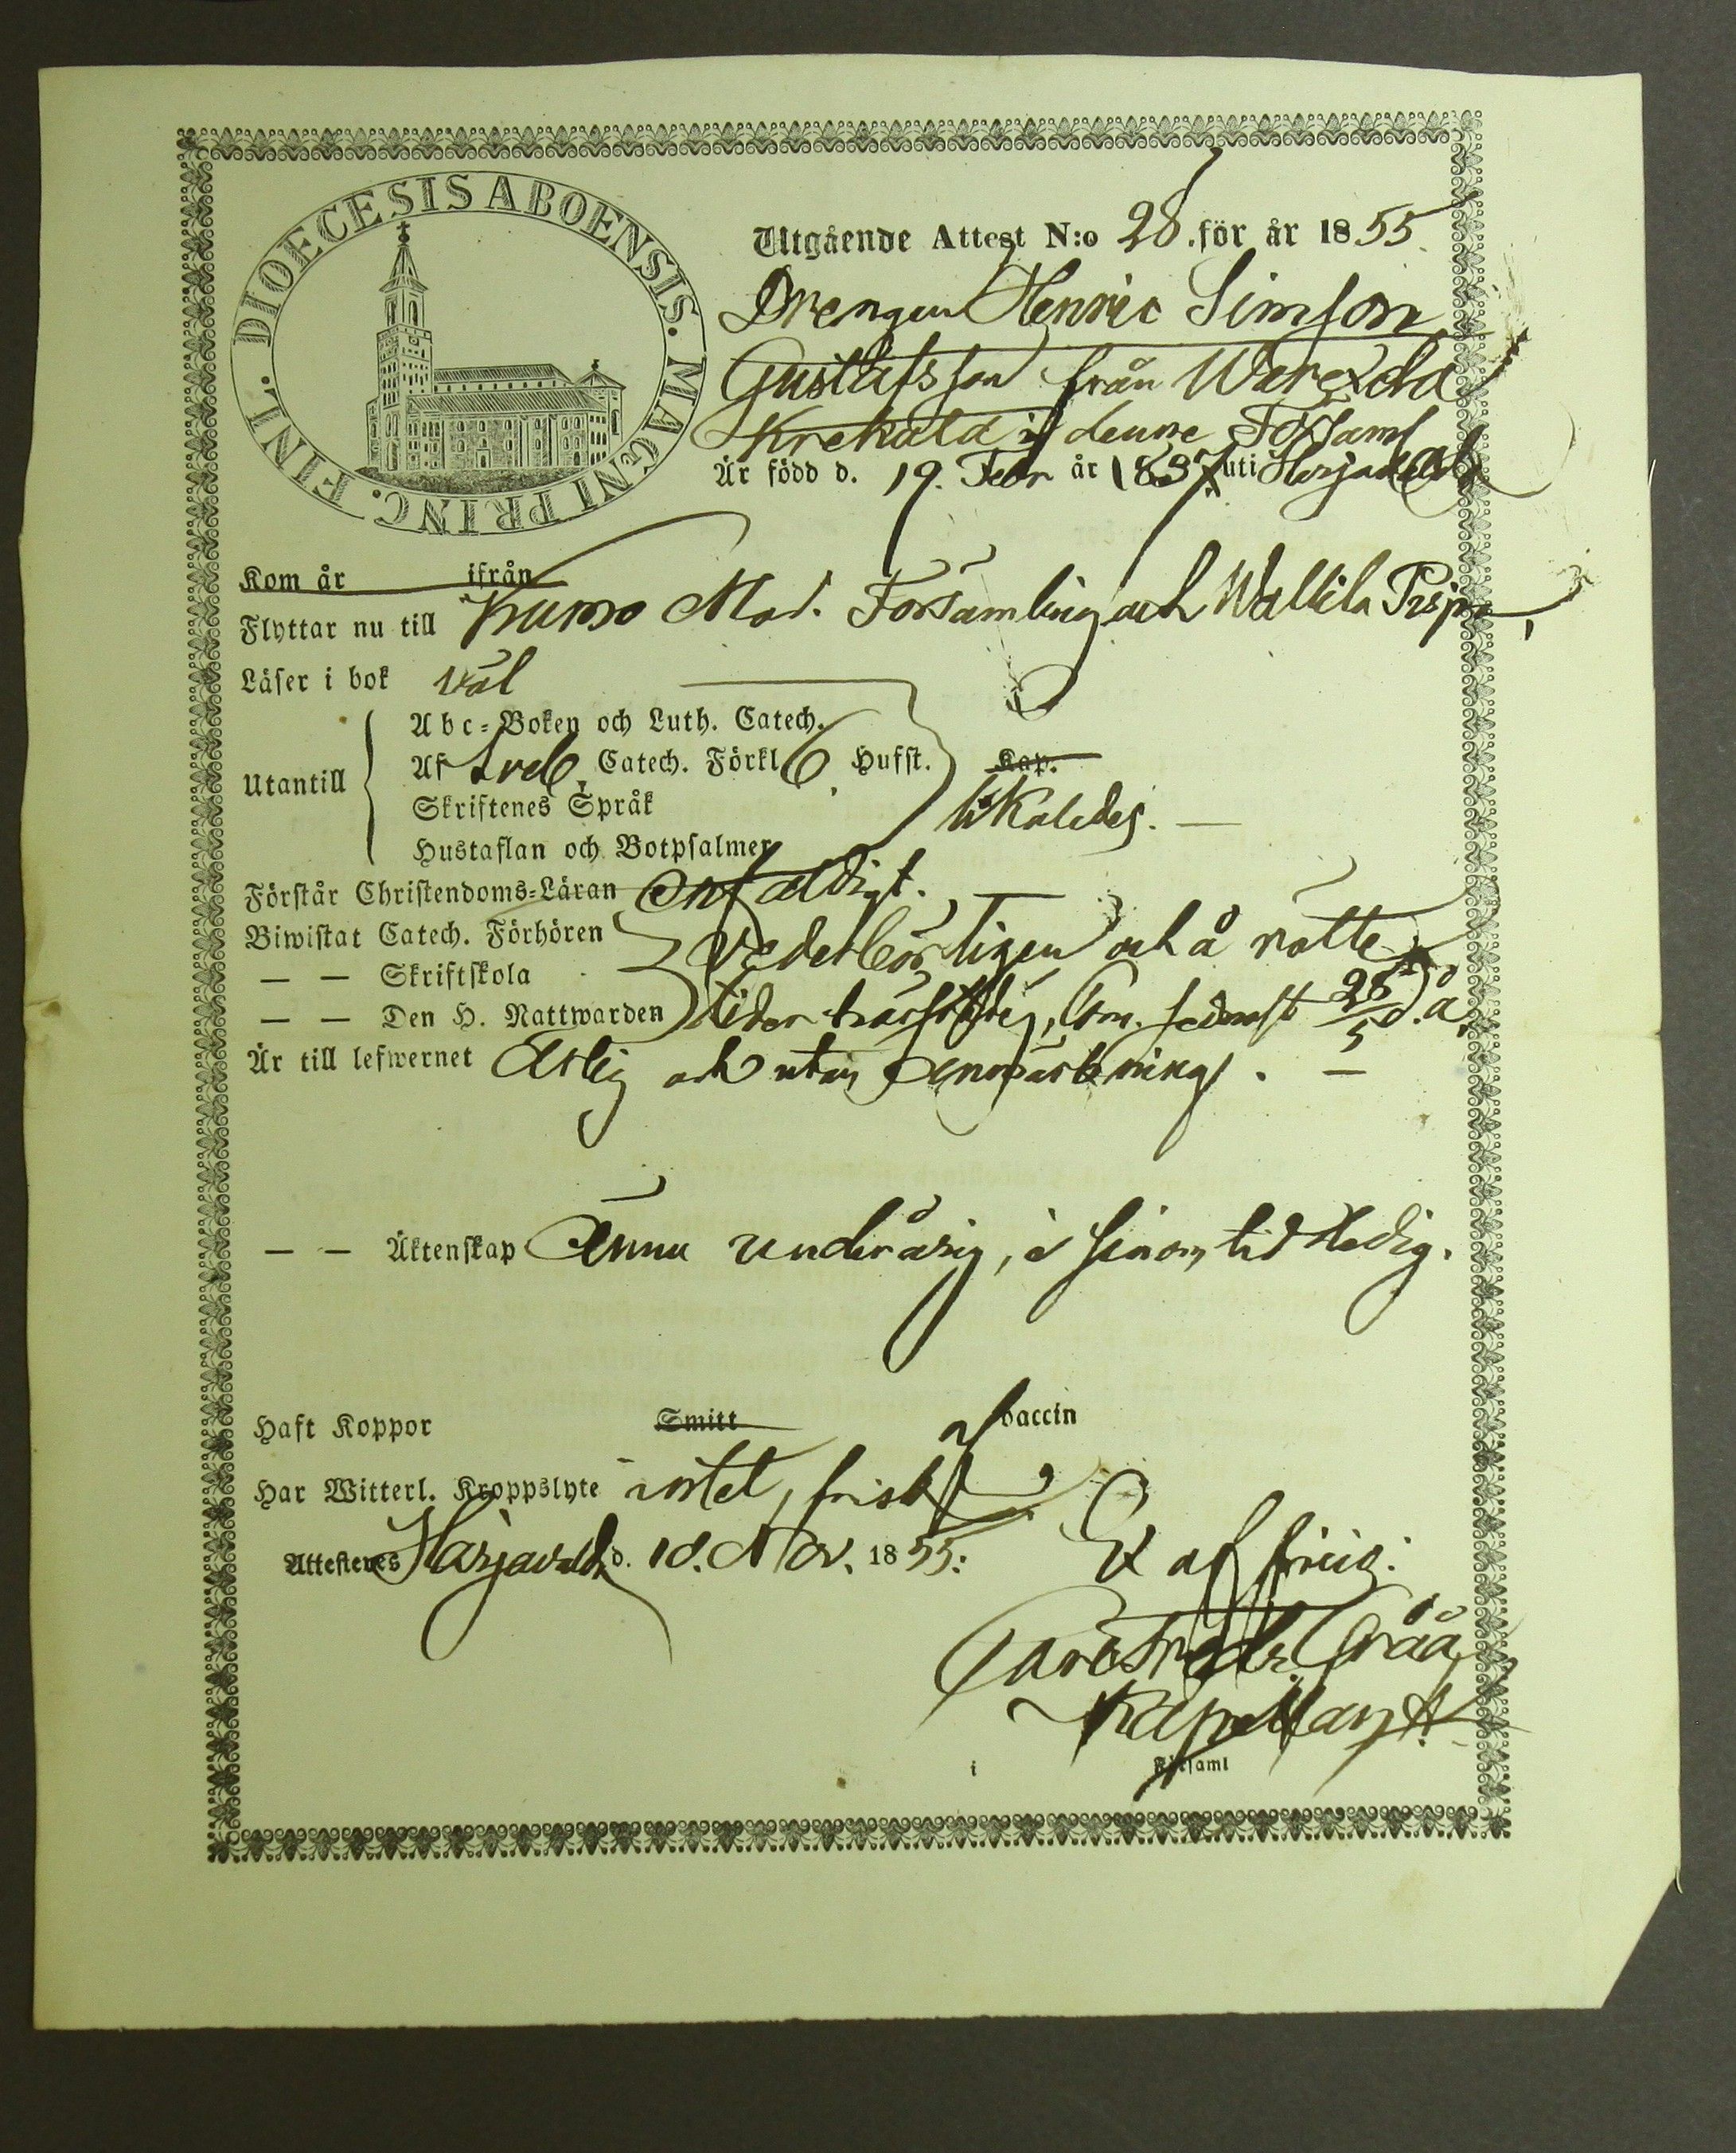 DIOECESIS ABOENSIS. MAGNI PRINC. FINL.
Utgående Attest N:o 28. för år 1855.
Drengen Henric Simson
Gustafsson från
i denne Församl
Är född d. 19. Febr år 1837 uti Harjavald
Kom år ifrån
Flyttar nu till Kumo Mod. Församling och Wallila
Läser i bok väl
Utantill
Abc-Boken och Luth. Catech.
Af Sveb. Catech. Förkl 6 Hufst. Kap.
Skriftenes Språk likaledes. —
Hustaflan och Botpsalmer
Förstår Christendoms-Läran enfaldigt. —
Biwistat Catech. Förhören vederbörligen och å rätte
— — Skriftskola
— — Den H. Nattwarden tider sednast 28/5 d. å.
Är till lefwernet Ärlig och utan anmärkning. —
— — Äktenskap Ännu underårig, i sinom tid ledig.
Haft Koppor Smitt af vaccin
Har Witterl. Kroppslyte intet, frisk
Attesteres Harjavald d. 18. Nov. 1855:
Ex officio:
Carl Fredr. Gråå
Kapellan
i Församl